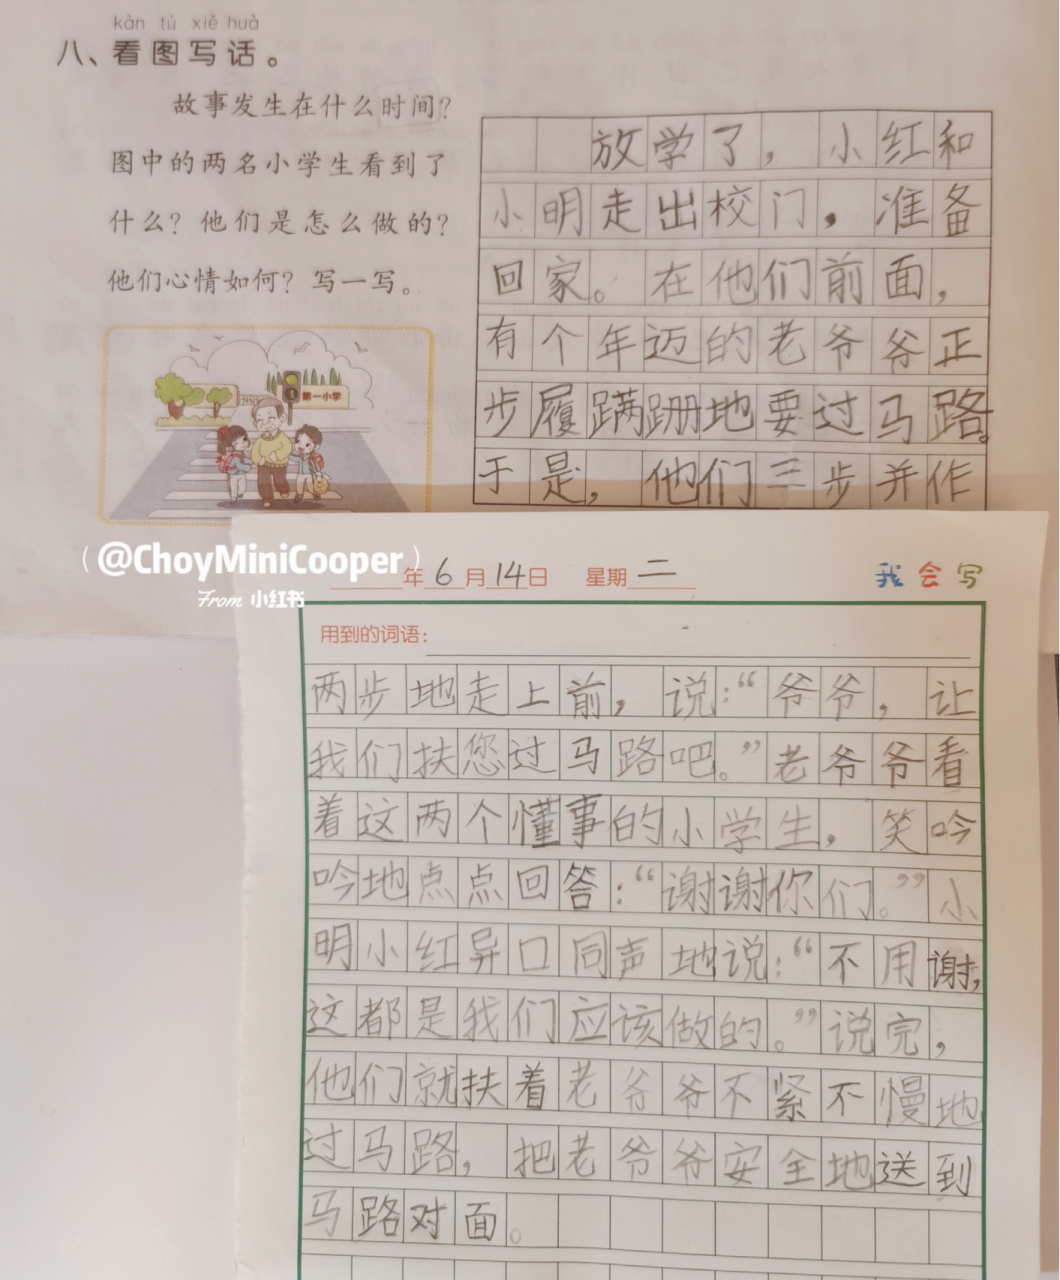 kàn tú xiě huà
八、看图写话。
故事发生在什么时间？
图中的两名小学生看到了
什么？他们是怎么做的？
他们心情如何？写一写。
第一小学
放学了，小红和
小明走出校门，准备
回家。在他们前面，
有个年迈的老爷爷正
步履蹒跚地要过马路。
于是，他们三步并作
（@ChoyMiniCooper）
From 小红书
年6月14日 星期二 我会写
用到的词语：
两步地走上前，说：“爷爷，让
我们扶您过马路吧。”老爷爷看
着这两个懂事的小学生，笑吟
吟地点点回答：“谢谢你们。”小
明小红异口同声地说：“不用谢，
这都是我们应该做的。”说完，
他们就扶着老爷爷不紧不慢地
过马路，把老爷爷安全地送到
马路对面。